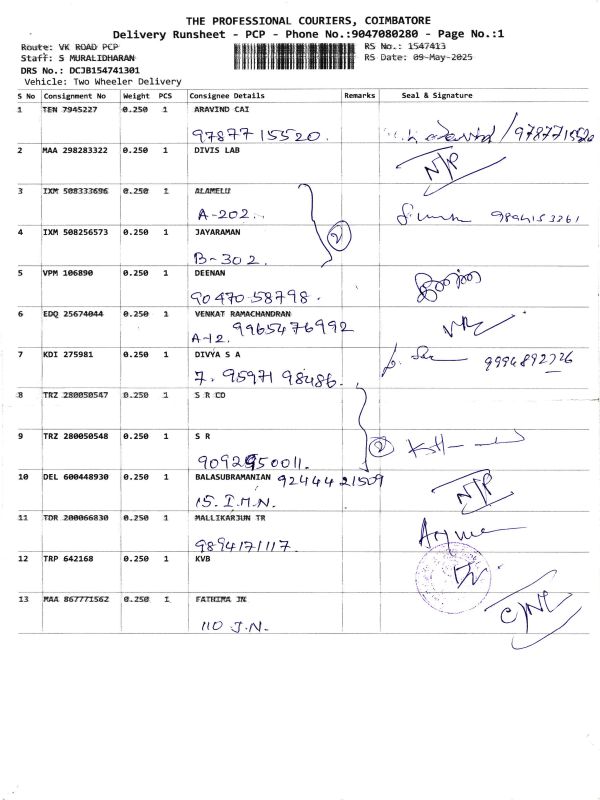 THE PROFESSIONAL COURIERS, COIMBATORE
Delivery Runsheet - PCP - Phone No.:9047080280 - Page No.:1
Route: VK ROAD PCP RS No.: 1547413
Staff: S MURALIDHARAN RS Date: 09-May-2025
DRS No.: DCJB154741301
Vehicle: Two Wheeler Delivery
S No Consignment No Weight PCS Consignee Details Remarks Seal & Signature
1 TEN 7945227 0.250 1 ARAVIND CAI
9787715520. /9787715520
2 MAA 298283322 0.250 1 DIVIS LAB
N/P
3 IXM 508333696 0.250 1 ALAMELU
A-202. 9894153261
2
4 IXM 508256573 0.250 1 JAYARAMAN
B-302.
5 VPM 106890 0.250 1 DEENAN
90470 58798.
6 EDQ 25674044 0.250 1 VENKAT RAMACHANDRAN
A-12. 9965476992
7 KDI 275981 0.250 1 DIVYA S A
7. 95971 98486. 9994892726
8 TRZ 280050547 0.250 1 S R CD
9 TRZ 280050548 0.250 1 S R
2
9092950011.
10 DEL 600448930 0.250 1 BALASUBRAMANIAN 9244421509
15. I.M.N. N/P
11 TDR 200066830 0.250 1 MALLIKARJUN TR
9894171117.
12 TRP 642168 0.250 1 KVB
13 MAA 867771562 0.250 1 FATHIMA JN
110 J.N.